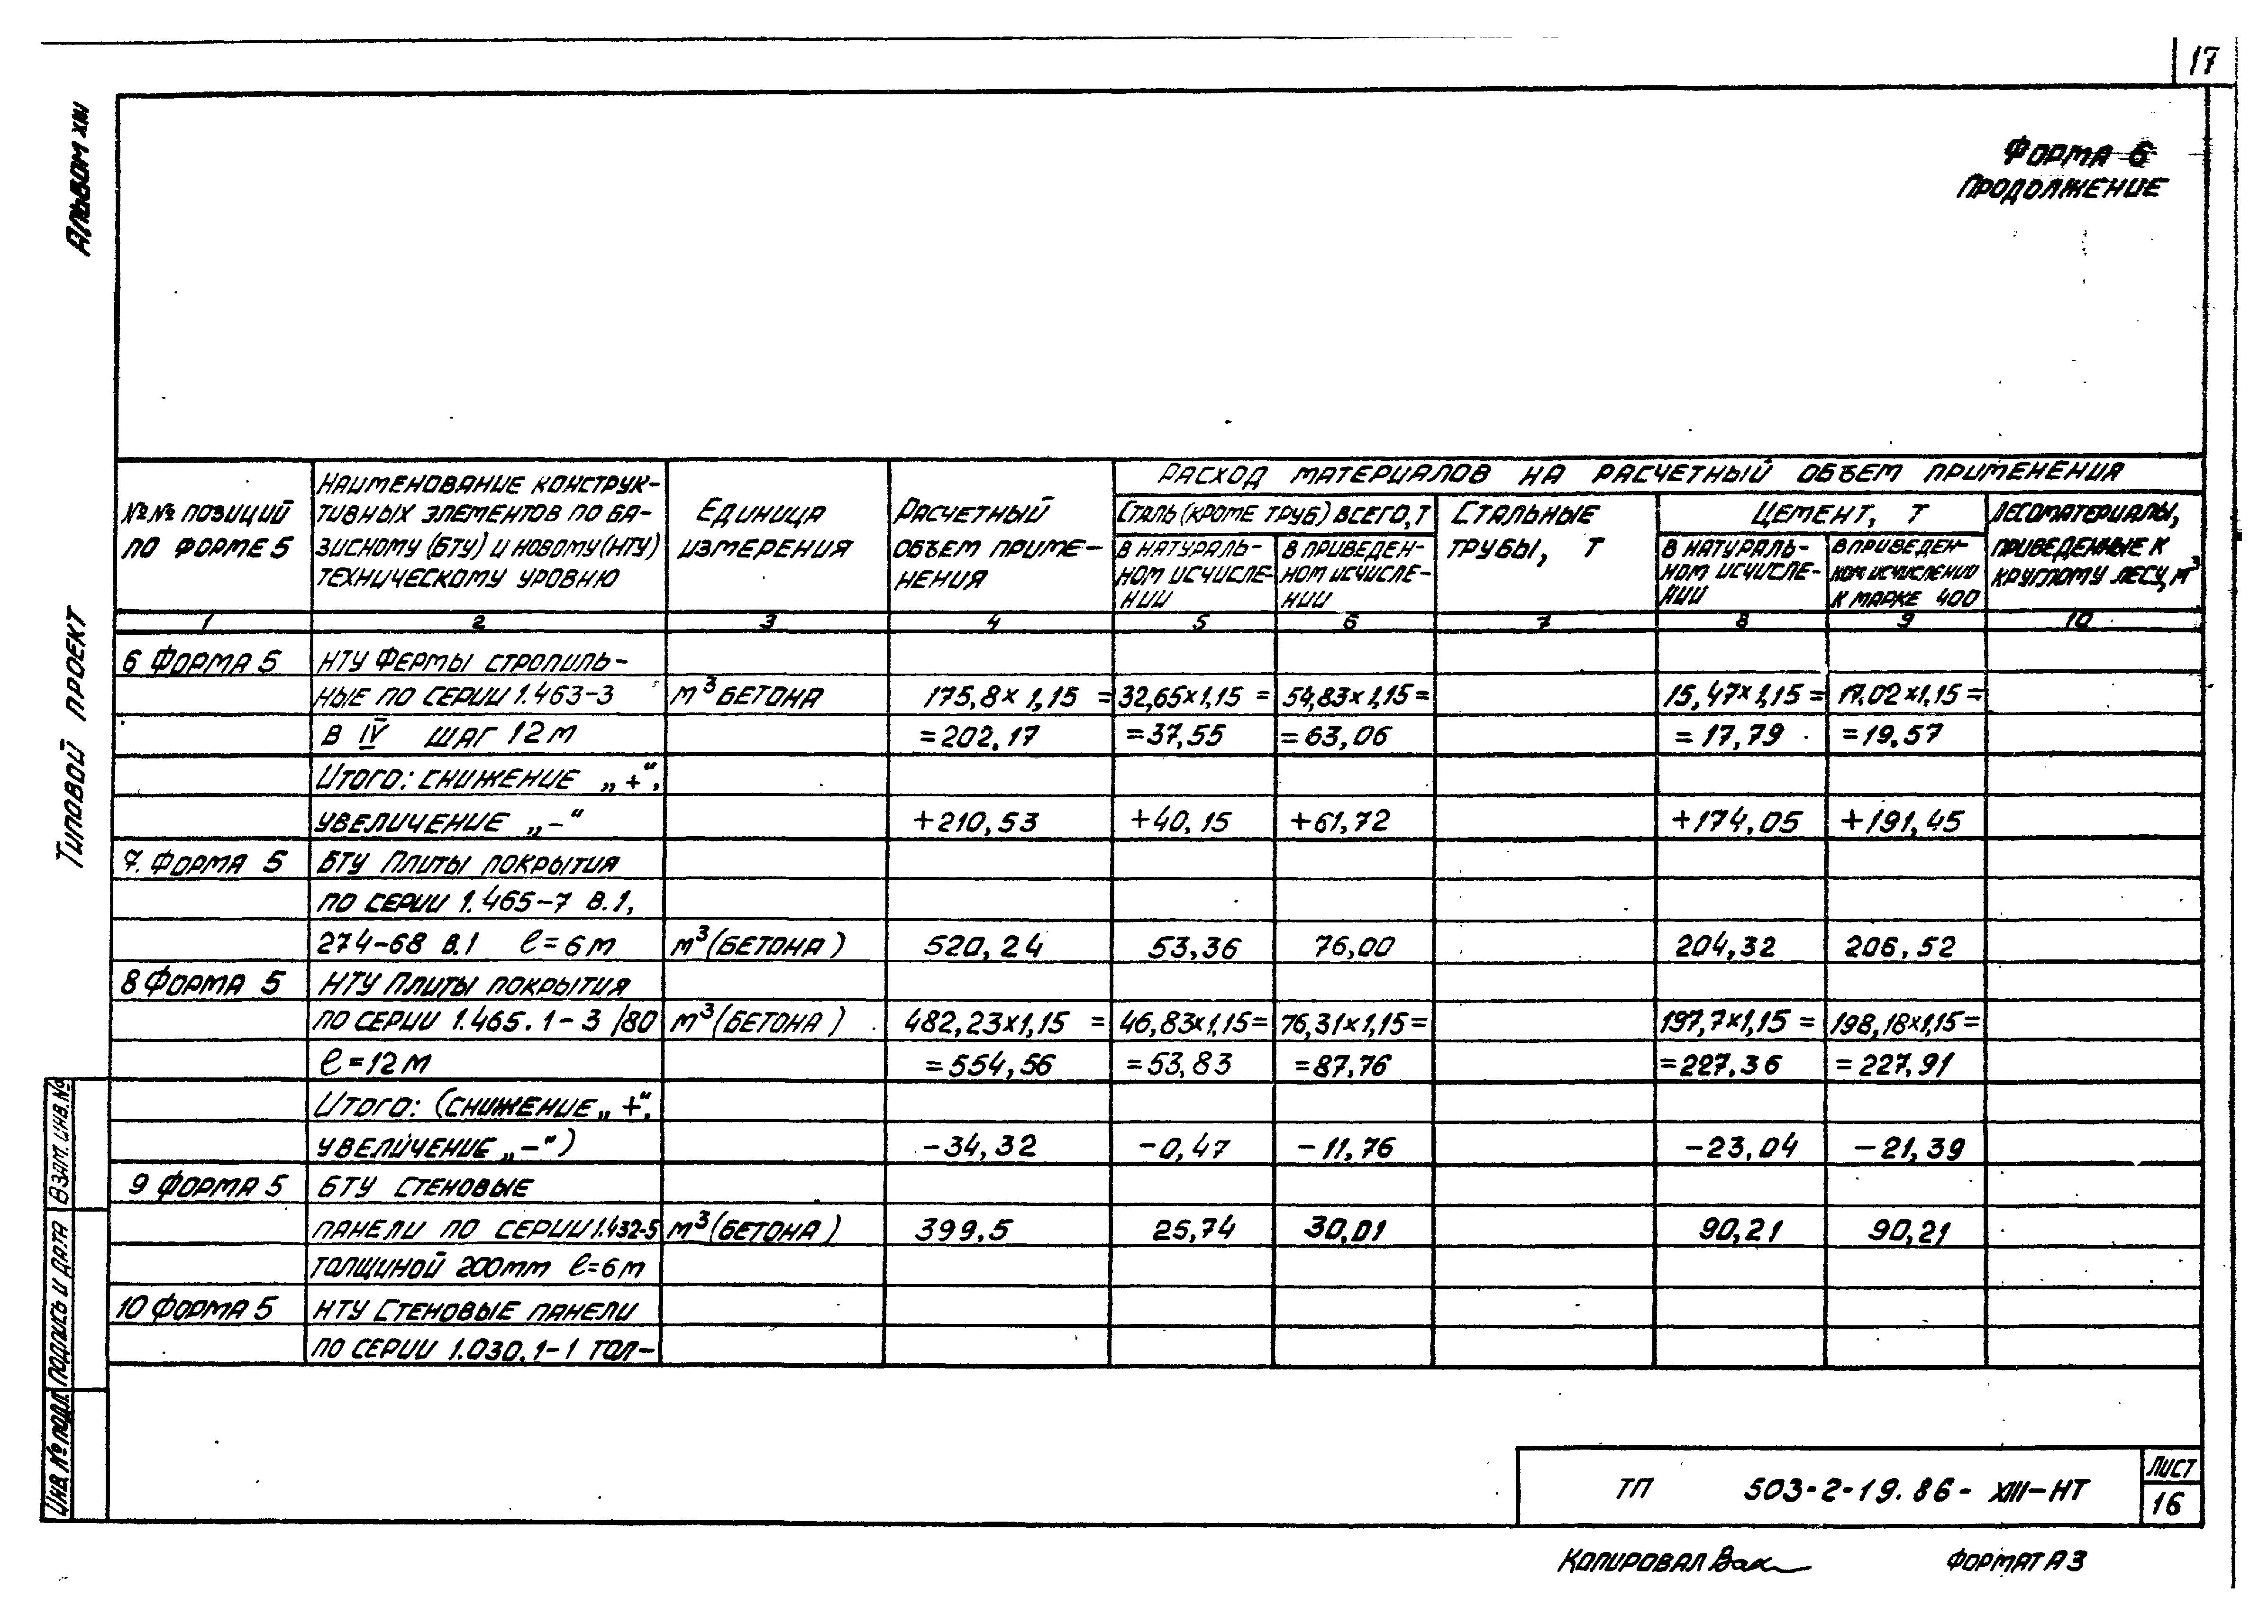 17
Альбом XIII
Форма 6
Продолжение
Типовой проект
№№ позиций по форме 5
Наименование конструк-
тивных элементов по ба-
зисному (БТУ) и новому (НТУ)
техническому уровню
Единица измерения
Расчетный объем приме-
нения
Расход материалов на расчетный объем применения
Сталь (кроме труб) всего, т
в натураль-
ном исчисле-
нии
в приведен-
ном исчисле-
нии
Стальные трубы, т
Цемент, т
в натураль-
ном исчисле-
нии
в приведен-
ном исчислении
к марке 400
Лесоматериалы,
приведенные к
круглому лесу, м³
1 2 3 4 5 6 7 8 9 10
6 Форма 5 НТУ Фермы стропиль-
ные по серии 1.463-3 м³ бетона 175,8×1,15 = 32,65×1,15 = 54,83×1,15= 15,47×1,15= 17,02×1,15=
в IV шаг 12 м =202,17 =37,55 =63,06 =17,79 =19,57
Итого: снижение „+“,
увеличение „-“ +210,53 +40,15 +61,72 +174,05 +191,45
7. Форма 5 БТУ Плиты покрытия
по серии 1.465-7 в.1,
274-68 в.1 ℓ=6м м³(бетона) 520,24 53,36 76,00 204,32 206,52
8 Форма 5 НТУ Плиты покрытия
по серии 1.465.1-3/80 м³(бетона) 482,23×1,15 = 46,83×1,15= 76,31×1,15= 197,7×1,15= 198,18×1,15=
ℓ=12м =554,56 =53,83 =87,76 =227,36 =227,91
Итого: (снижение „+“,
увеличение „-“) -34,32 -0,47 -11,76 -23,04 -21,39
9 Форма 5 БТУ Стеновые
панели по серии 1.432-5 м³(бетона) 399,5 25,74 30,01 90,21 90,21
толщиной 200мм ℓ=6м
10 Форма 5 НТУ Стеновые панели
по серии 1.030.1-1 тол-
Взам. инв. №
Подпись и дата
Инв. № подл.
ТП 503-2-19.86- XIII-НТ
Лист
16
Копировал
Формат А3